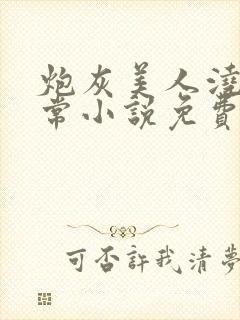 炮灰美人澆
常小說免費
可否許我清夢